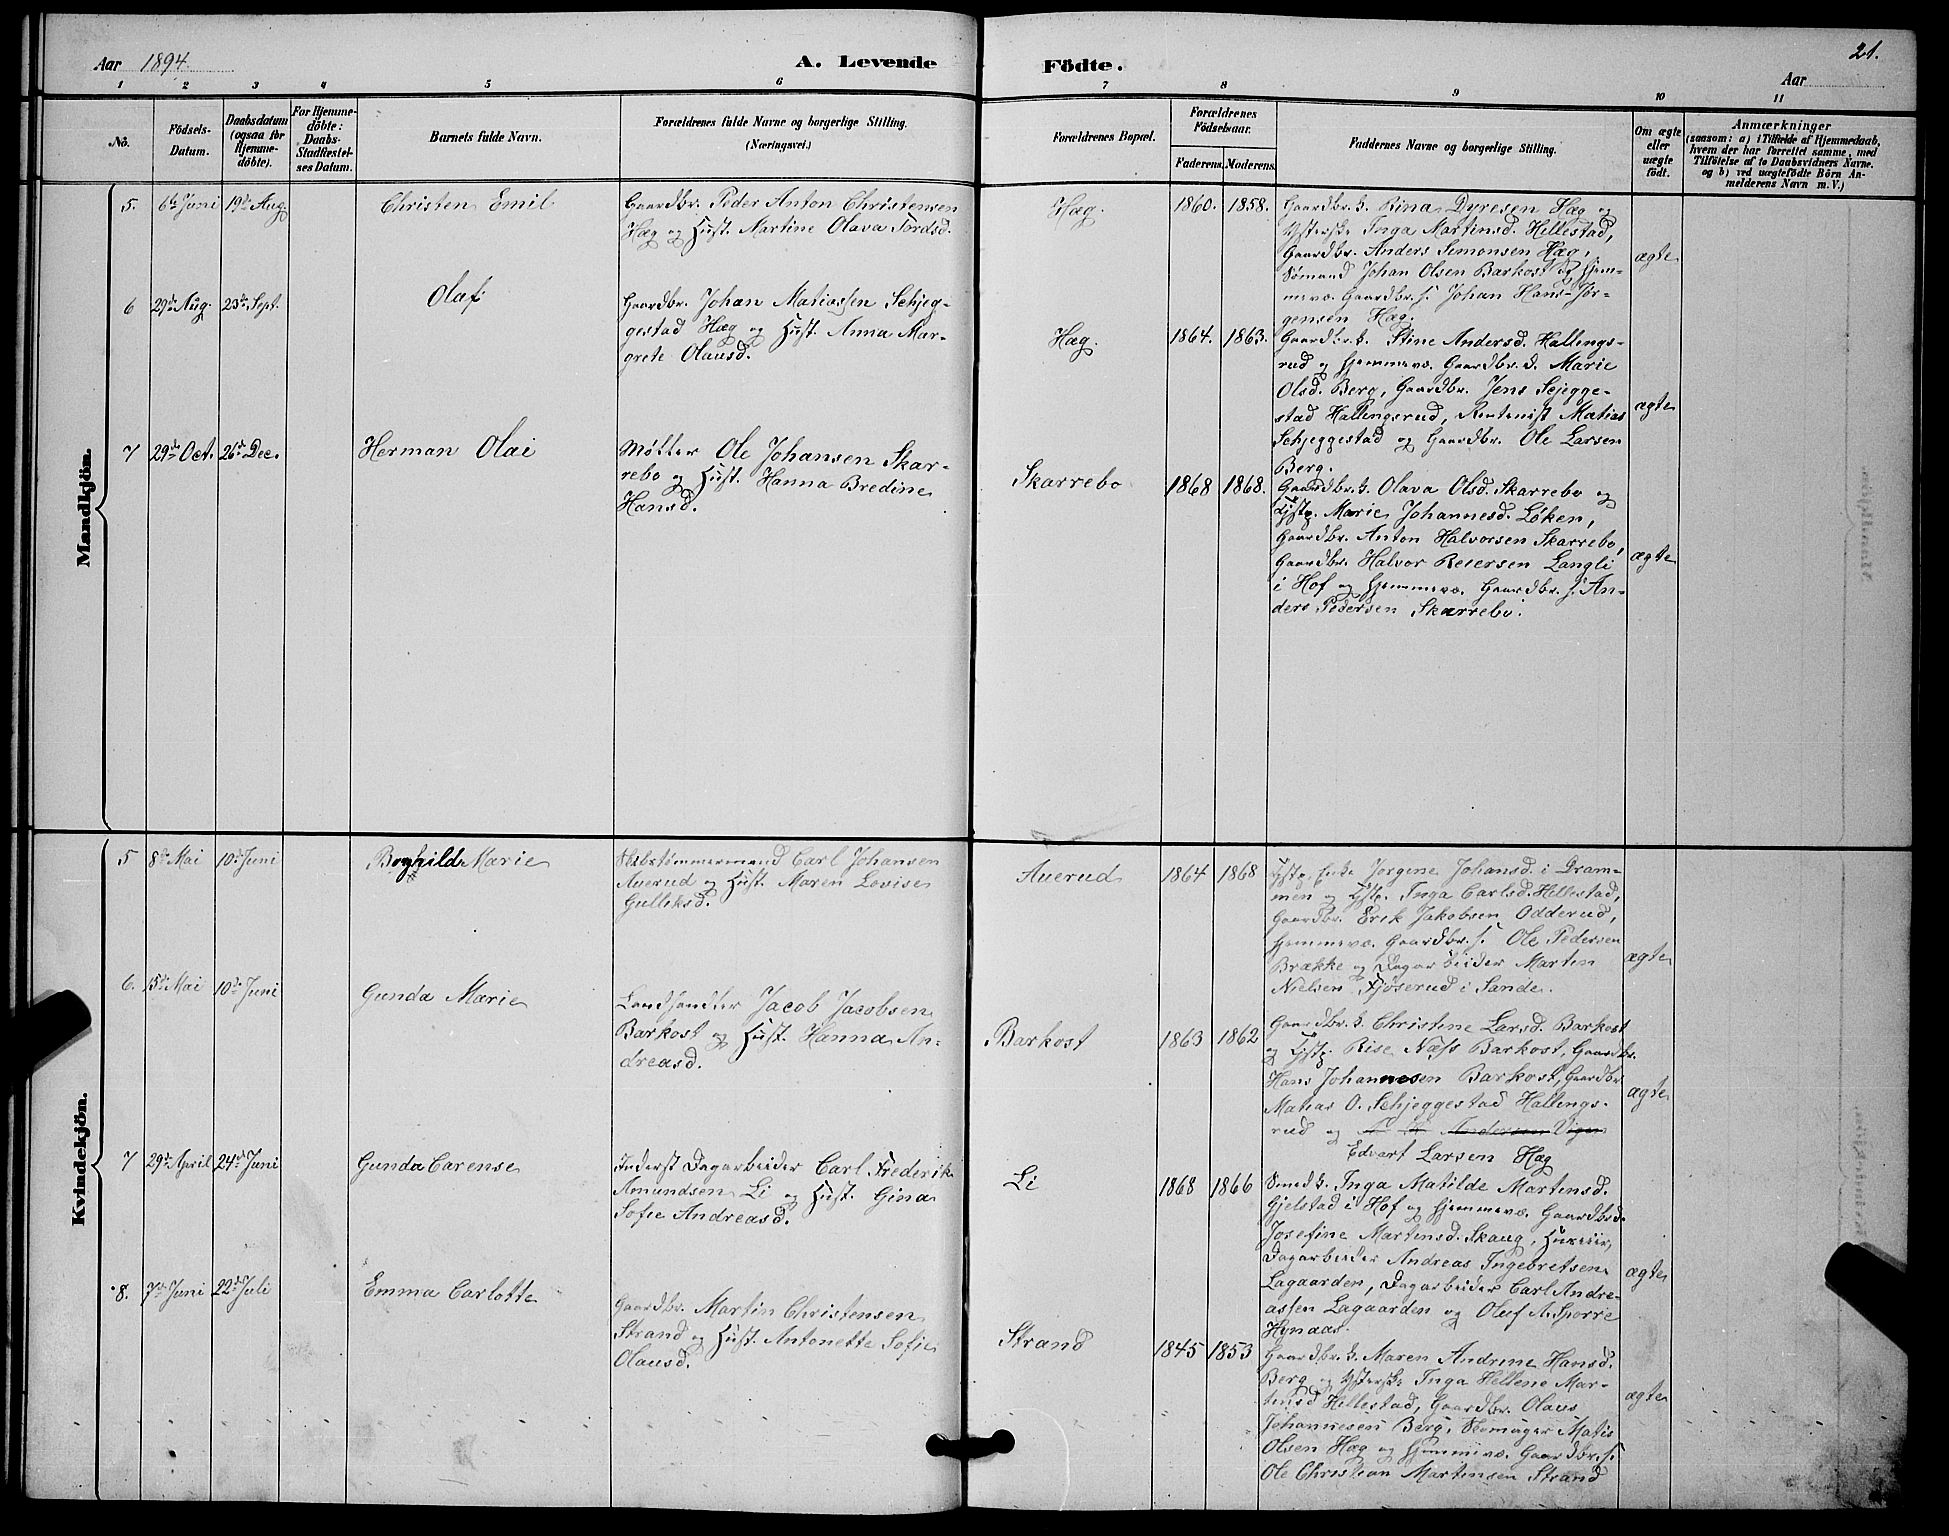 Aar 1894.
A. Levende
Födte.
21.
Aar
1
2
3
4
5
6
7
8
9
10
11
No.
Födsels-
Datum.
Daabsdatum
(ogsaa for
Hjemme-
döbte).
For Hjemme-
döbte:
Daabs-
Stadfæstel-
ses Datum.
Barnets fulde Navn.
Forældrenes fulde Navne og borgerlige Stilling.
(Næringsvei.)
Forældrenes Bopæl.
Forældrenes
Födselsaar.
Faderens.
Moderens.
Faddernes Navne og borgerlige Stilling.
Om ægte
eller
uægte
födt.
Anmærkninger
(saasom: a) i Tilfælde af Hjemmedaab,
hvem der har forrettet samme, med
Tilföielse af to Daabsvidners Navne.
og b) ved uægtefödte Börn An-
melderens Navn m. V.)
Mandkjön.
5.
6te Juni
19de Aug.
Christen Emil
Gaardbr. Peder Anton Christensen
Hæg og Hust. Martine Olava Tordsd.
Hæg.
1860.
1858.
Gaardbr. h. Rina Dyresen Hæg og
Inga Martinsd. Hellestad,
Gaardbr. Anders Simonsen Hæg,
Sømand Johan Olsen Barkost og hjem-
mevæ. Gaardbr. s. Johan Hans Jør-
gensen Hæg.
ægte
6
29de Aug.
23de Sept.
Olaf
Gaardbr. Johan Matiassen Schjeg-
gestad Hæg og Hust. Anna Mar-
grete Olausd.
Hæg.
1864.
1863.
Gaardbr. h. Stine Andersd. Hallings-
rud og hjemmevæ. Gaardbr. d. Marie
Olsd. Berg, Gaardbr. Jens Sejegge-
stad Hallingsrud, Rentenist Matias
Schjeggestad og Gaardbr. Ole Larsen
Berg.
ægte
7
29de Oct.
26de Dec.
Herman Olai
Møller Ole Johansen Skar-
rebo og Hust. Hanna Bredine
Hansd.
Skarrebo
1868
1868.
Gaardbr. h. Olava Olsd. Skarrebo og
Marie Johannesd. Løken,
Gaardbr. Anton Halvorsen Skarrebo,
Gaardbr. Halvor Reiersen Langli
i Hof og hjemmevæ. Gaardbr. s. An-
ders Pedersen Skarrebo.
ægte
Kvindekjön.
5
8de Mai
10de Juni
Borghild Marie
Skibstømmermand Carl Johansen
Auerud og Hust. Maren Lovise
Gulliksd.
Auerud
1864
1868
Enke Jørgine Johansd. i Dram-
men og Inga Carlsd. Hellestad,
Gaardbr. Erik Jakobsen Odderud,
hjemmevæ. Gaardbr. s. Ole Pedersen
Brække og Dagarbeider Martin
Nielsen Fjøserud i Sande.
ægte
6.
15de Mai
10de Juni
Gunda Marie
Landhandler Jacob Jacobsen
Barkost og Hust. Hanna An-
dreasd.
Barkost
1863
1862
Gaardbr. h. Christine Larsd. Barkost
og Rise Næss Barkost, Gaardbr.
Hans Johannesen Barkost, Gaardbr.
Matias O. Schjeggestad Hallings-
rud og Andersen
Edvart Larsen Hæg
ægte
7
29de April
24de Juni
Gunda Carense
Inderst Dagarbeider Carl Frederik
Amundsen Li og Hust. Gina
Sofie Andreasd.
Li
1868
1866
Smed h. Inga Matilde Martinsd.
Gjelstad i Hof og hjemmevæ. Gaardbr. d.
Josefine Martinsd. Skaug, Huseier,
Dagarbeider Andreas Ingebretsen
Lagaarden, Dagarbeider Carl Andre-
assen Lagaarden og Oluf A. Sporre
Hynaas.
ægte
8.
7de Juni
22de Juli
Emma Carlotte
Gaardbr. Martin Christensen
Strand og Hust. Antonette Sofie
Olausd.
Strand
1845
1853
Gaardbr. h. Maren Andrine Hansd.
Berg og Inga Hellene Mar-
tinsd. Hellestad, Gaardbr. Olaus
Johannesen Berg, Skomager Matis
Olsen Hæg og hjemmevæ. Gaardbr. s.
Ole Christian Martinsen Strand
ægte